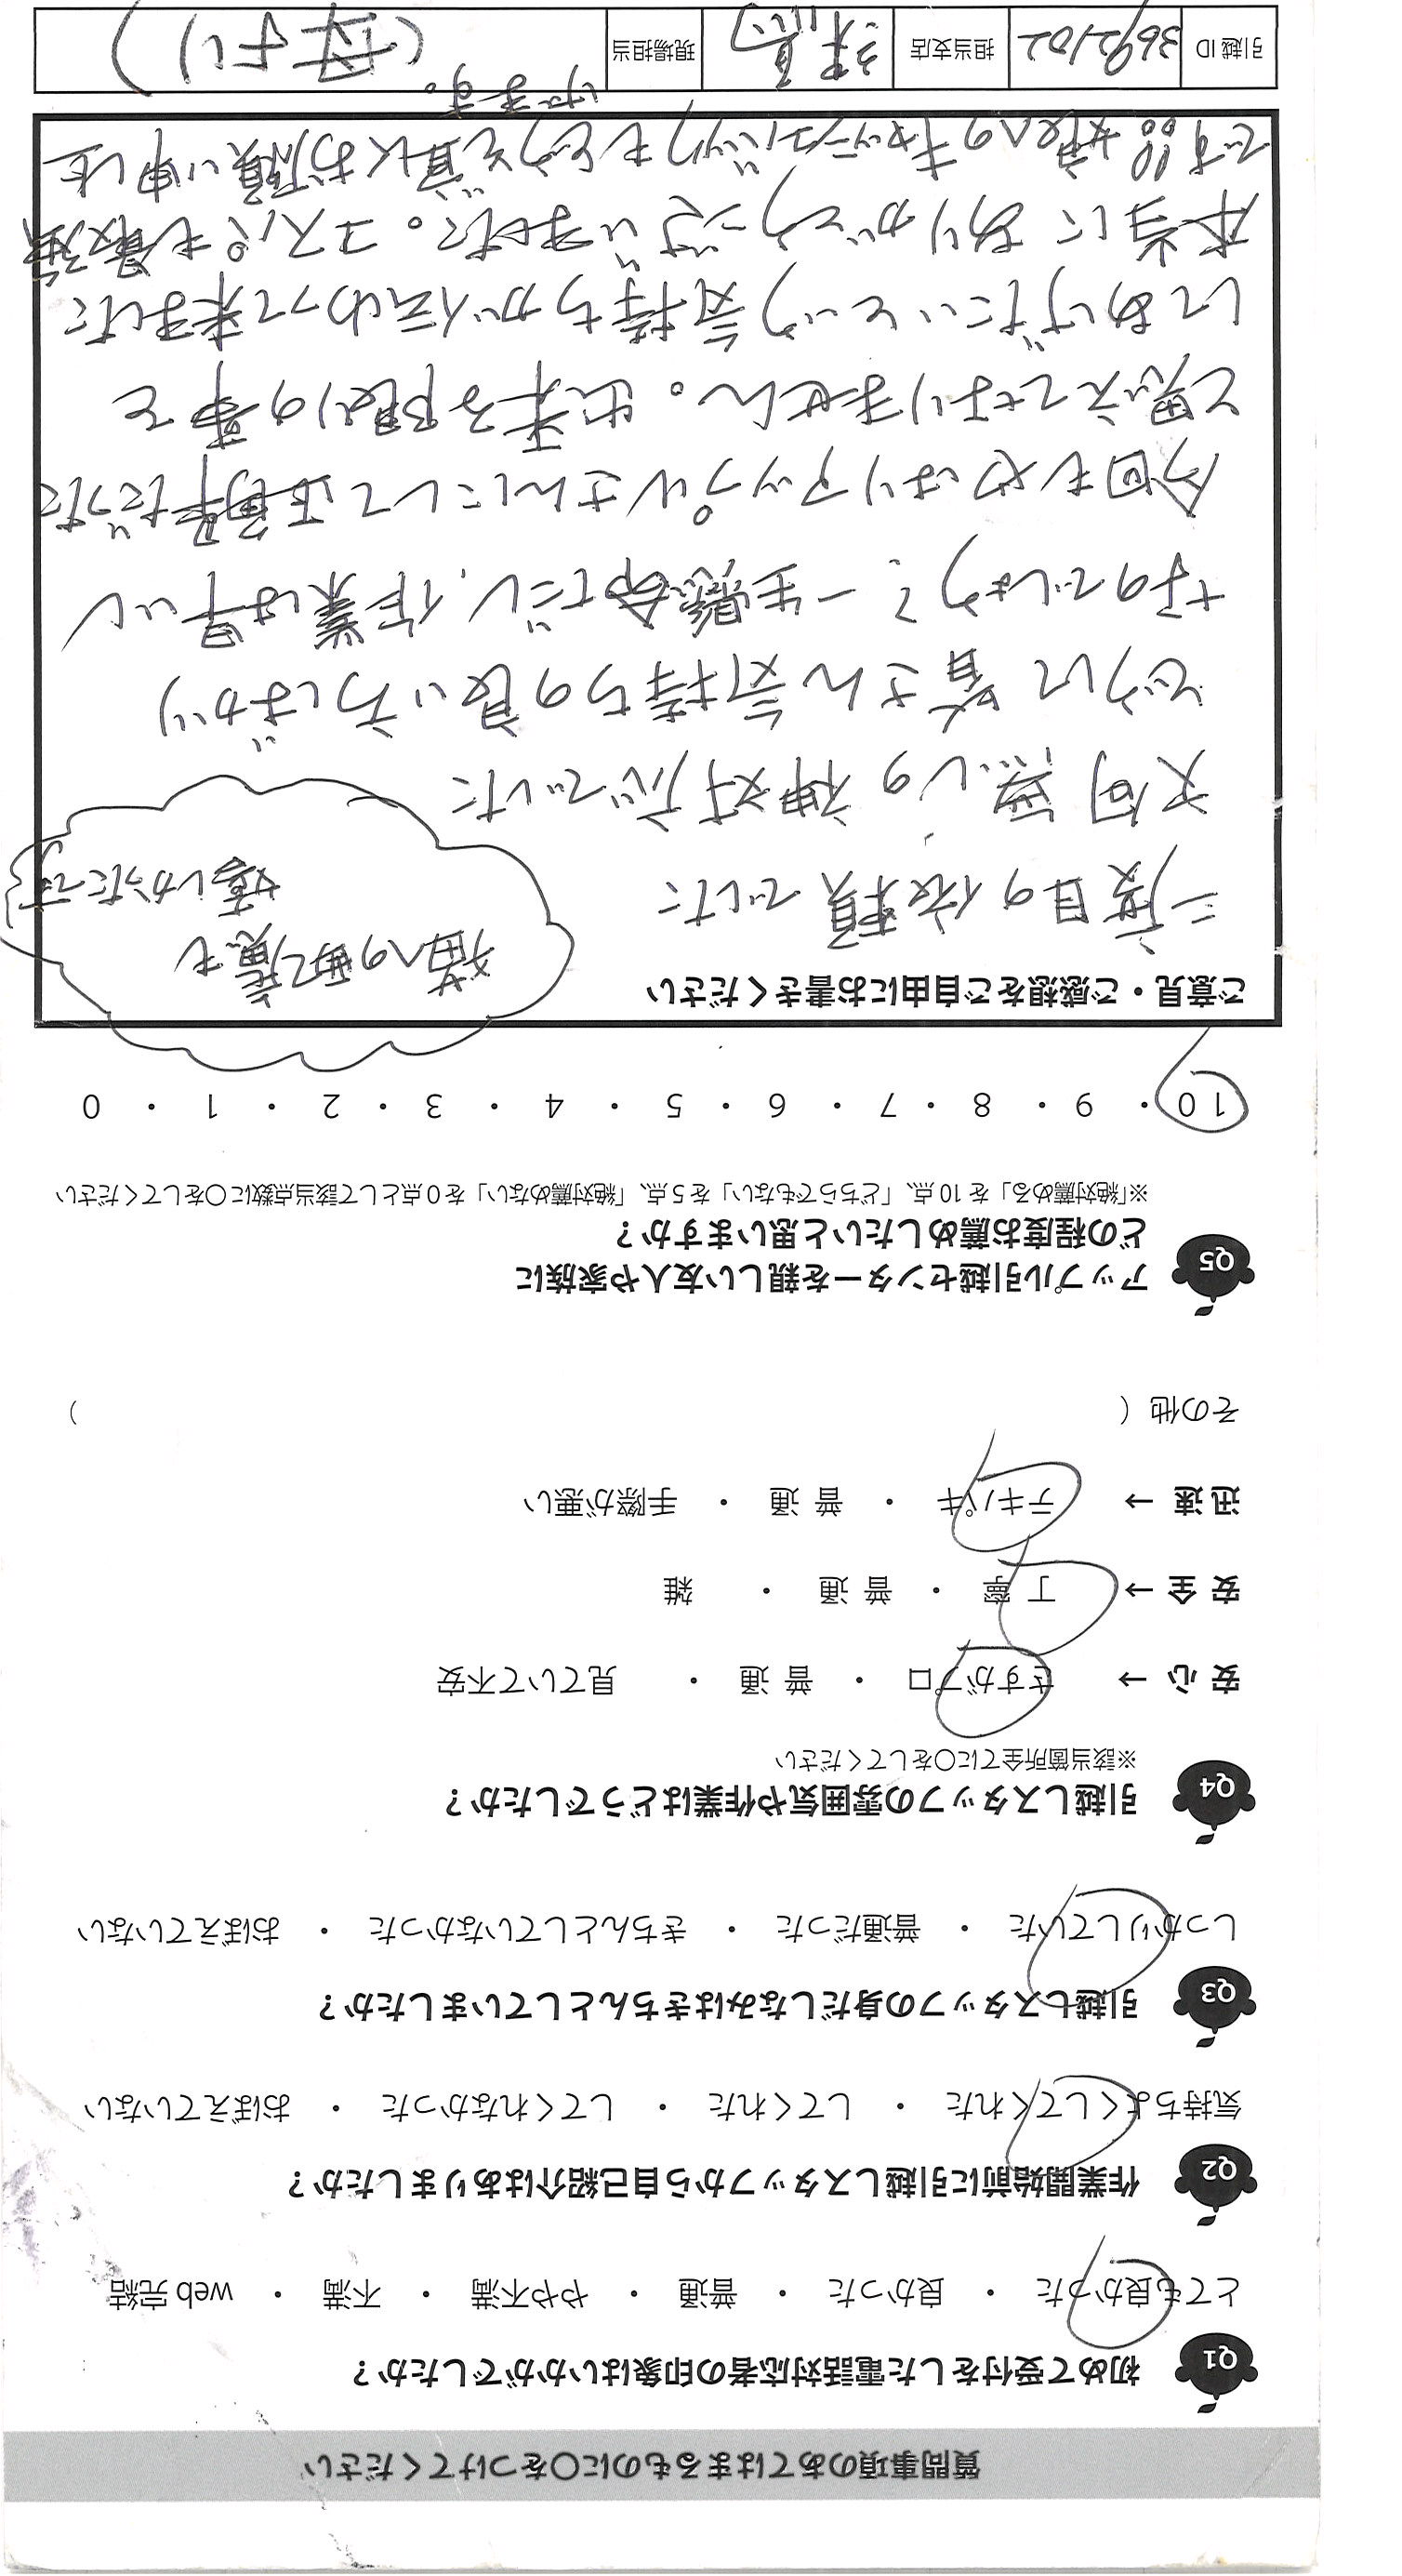 質問事項のあてはまるものに〇をつけてください
Q1 初めて受付をした電話対応者の印象はいかがでしたか？
とても良かった ・ 良かった ・ 普通 ・ やや不満 ・ 不満 ・ web 完結
Q2 作業開始前に引越しスタッフから自己紹介はありましたか？
気持ちよくしてくれた ・ してくれた ・ してくれなかった ・ おぼえていない
Q3 引越しスタッフの身だしなみはきちんとしていましたか？
しっかりしていた ・ 普通だった ・ きちんとしていなかった ・ おぼえていない
Q4 引越しスタッフの雰囲気や作業はどうでしたか？
※該当箇所全てに〇をしてください
安 心 → さすがプロ ・ 普 通 ・ 見ていて不安
安 全 → 丁 寧 ・ 普 通 ・ 雑
迅 速 → テキパキ ・ 普 通 ・ 手際が悪い
その他 （ ）
Q5 アップル引越センターを親しい友人や家族に
どの程度お薦めしたいと思いますか？
※「絶対薦める」を 10 点、「どちらでもない」を 5 点、「絶対薦めない」を 0 点として該当点数に〇をしてください
10 ・ 9 ・ 8 ・ 7 ・ 6 ・ 5 ・ 4 ・ 3 ・ 2 ・ 1 ・ 0
ご意見・ご感想をご自由にお書きください
猫への配慮も
嬉しかったです
二度目の依頼でした
文句無しの神対応でした
どうして皆さん気持ちの良い方ばかり
なのでしょう？一生懸命だし、作業は早いし
今回もやはりアップルさんにして正解だった
と思えてなりません。出来る限りの事を
してあげたいという気持ちが伝わって来ました
本当にありがとうございました。コスパも最強
です!!! 娘へのキャッシュバックもどうぞ宜しくお願い申し上
げます。
引越 ID 3692102 担当支店 練馬 現場担当 (母より)